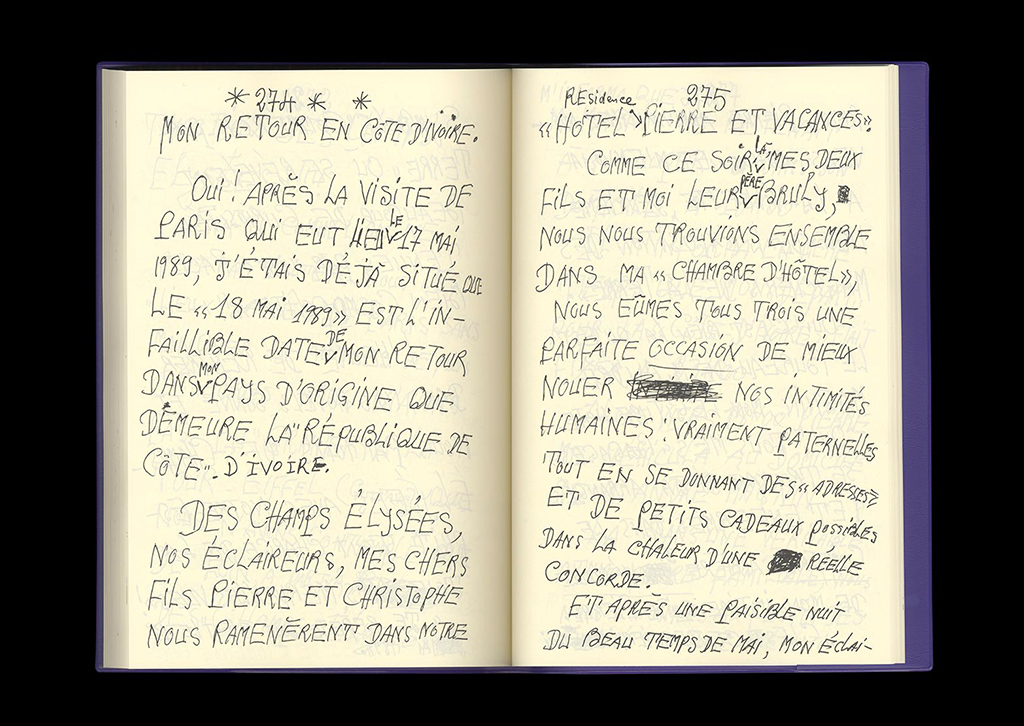 * 274 * *
MON RETOUR EN CÔTE D'IVOIRE.
OUI ! APRÈS LA VISITE DE
PARIS QUI EUT LIEU LE 17 MAI
1989, J'ÉTAIS DÉJÀ SITUÉ QUE
LE «18 MAI 1989» EST L'IN-
FAILLIBLE DATE DE MON RETOUR
DANS MON PAYS D'ORIGINE QUE
DEMEURE LA "RÉPUBLIQUE DE
CÔTE". D'IVOIRE.
DES CHAMPS ÉLYSÉES,
NOS ÉCLAIREURS, MES CHERS
FILS PIERRE ET CHRISTOPHE
NOUS RAMENÈRENT DANS NOTRE
275
«HÔTEL RÉsidence PIERRE ET VACANCES».
COMME CE SOIR LÀ, MES DEUX
FILS ET MOI LEUR PÈRE BRULY,
NOUS NOUS TROUVIONS ENSEMBLE
DANS MA «CHAMBRE D'HÔTEL»,
NOUS EÛMES TOUS TROIS UNE
PARFAITE OCCASION DE MIEUX
NOUER NOS INTIMITÉS
HUMAINES : VRAIMENT PATERNELLES
TOUT EN SE DONNANT DES «ADRESSES»,
ET DE PETITS CADEAUX POSSIBLES
DANS LA CHALEUR D'UNE RÉELLE
CONCORDE.
ET APRÈS UNE PAISIBLE NUIT
DU BEAU TEMPS DE MAI, MON ÉCLAI-